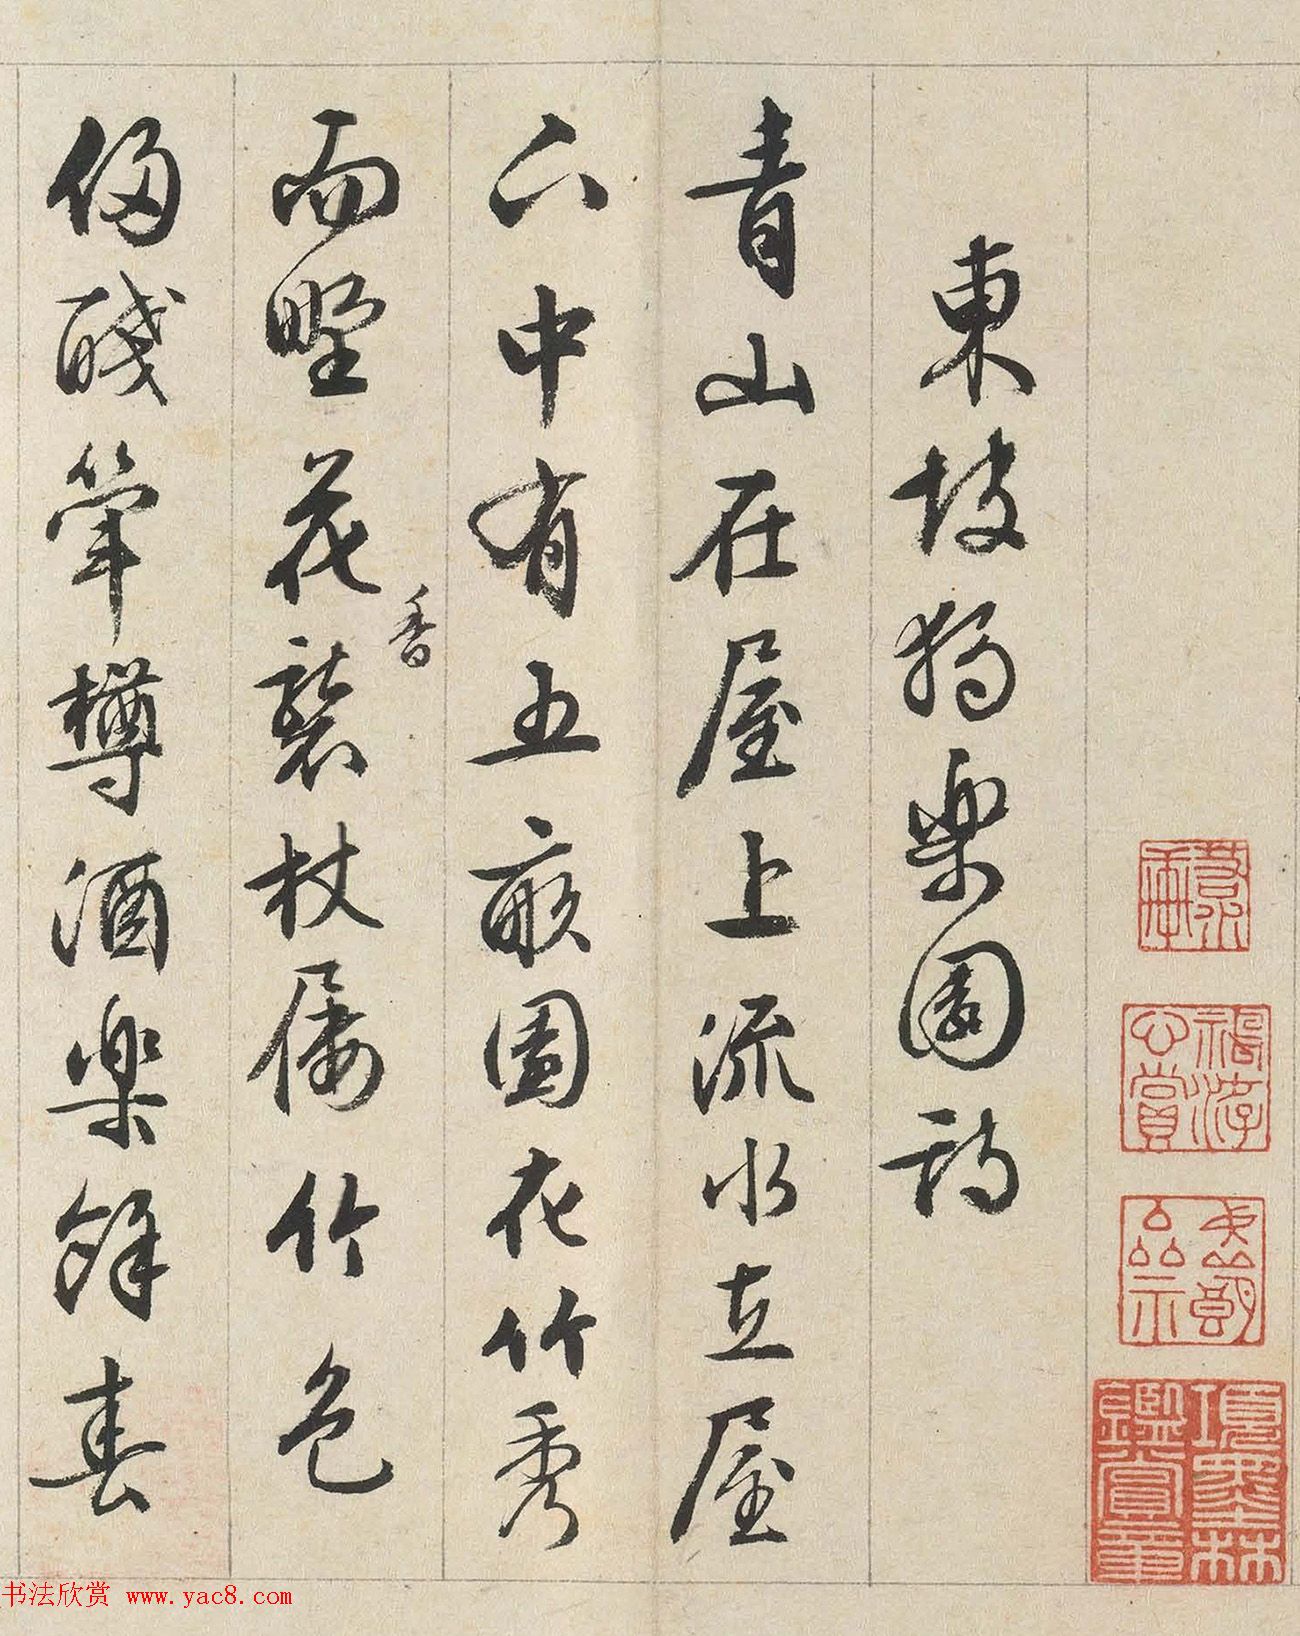 東坡獨樂園詩
青山在屋上流水在屋
下中有五畝園花竹秀
而野花香襲杖屨竹色
侵醆斝樽酒樂餘春
神游心賞
項墨林鑑賞章
书法欣赏 www.yac8.com